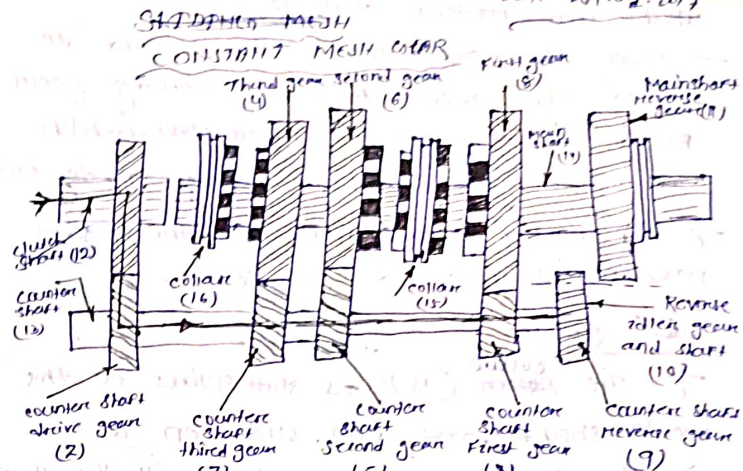 CONSTANT MESH GEAR
Third gear
(4)
second gear
(6)
First gear
(8)
Mainshaft
reverse
gear(11)
Main
shaft
Clutch
shaft (12)
Counter
shaft
(13)
Collar
(16)
Collar
(15)
Reverse
idler gear
and shaft
(10)
counter shaft
drive gear
(2)
counter
shaft
third gear
counter
shaft
second gear
counter
shaft
First gear
counter shaft
reverse gear
(9)